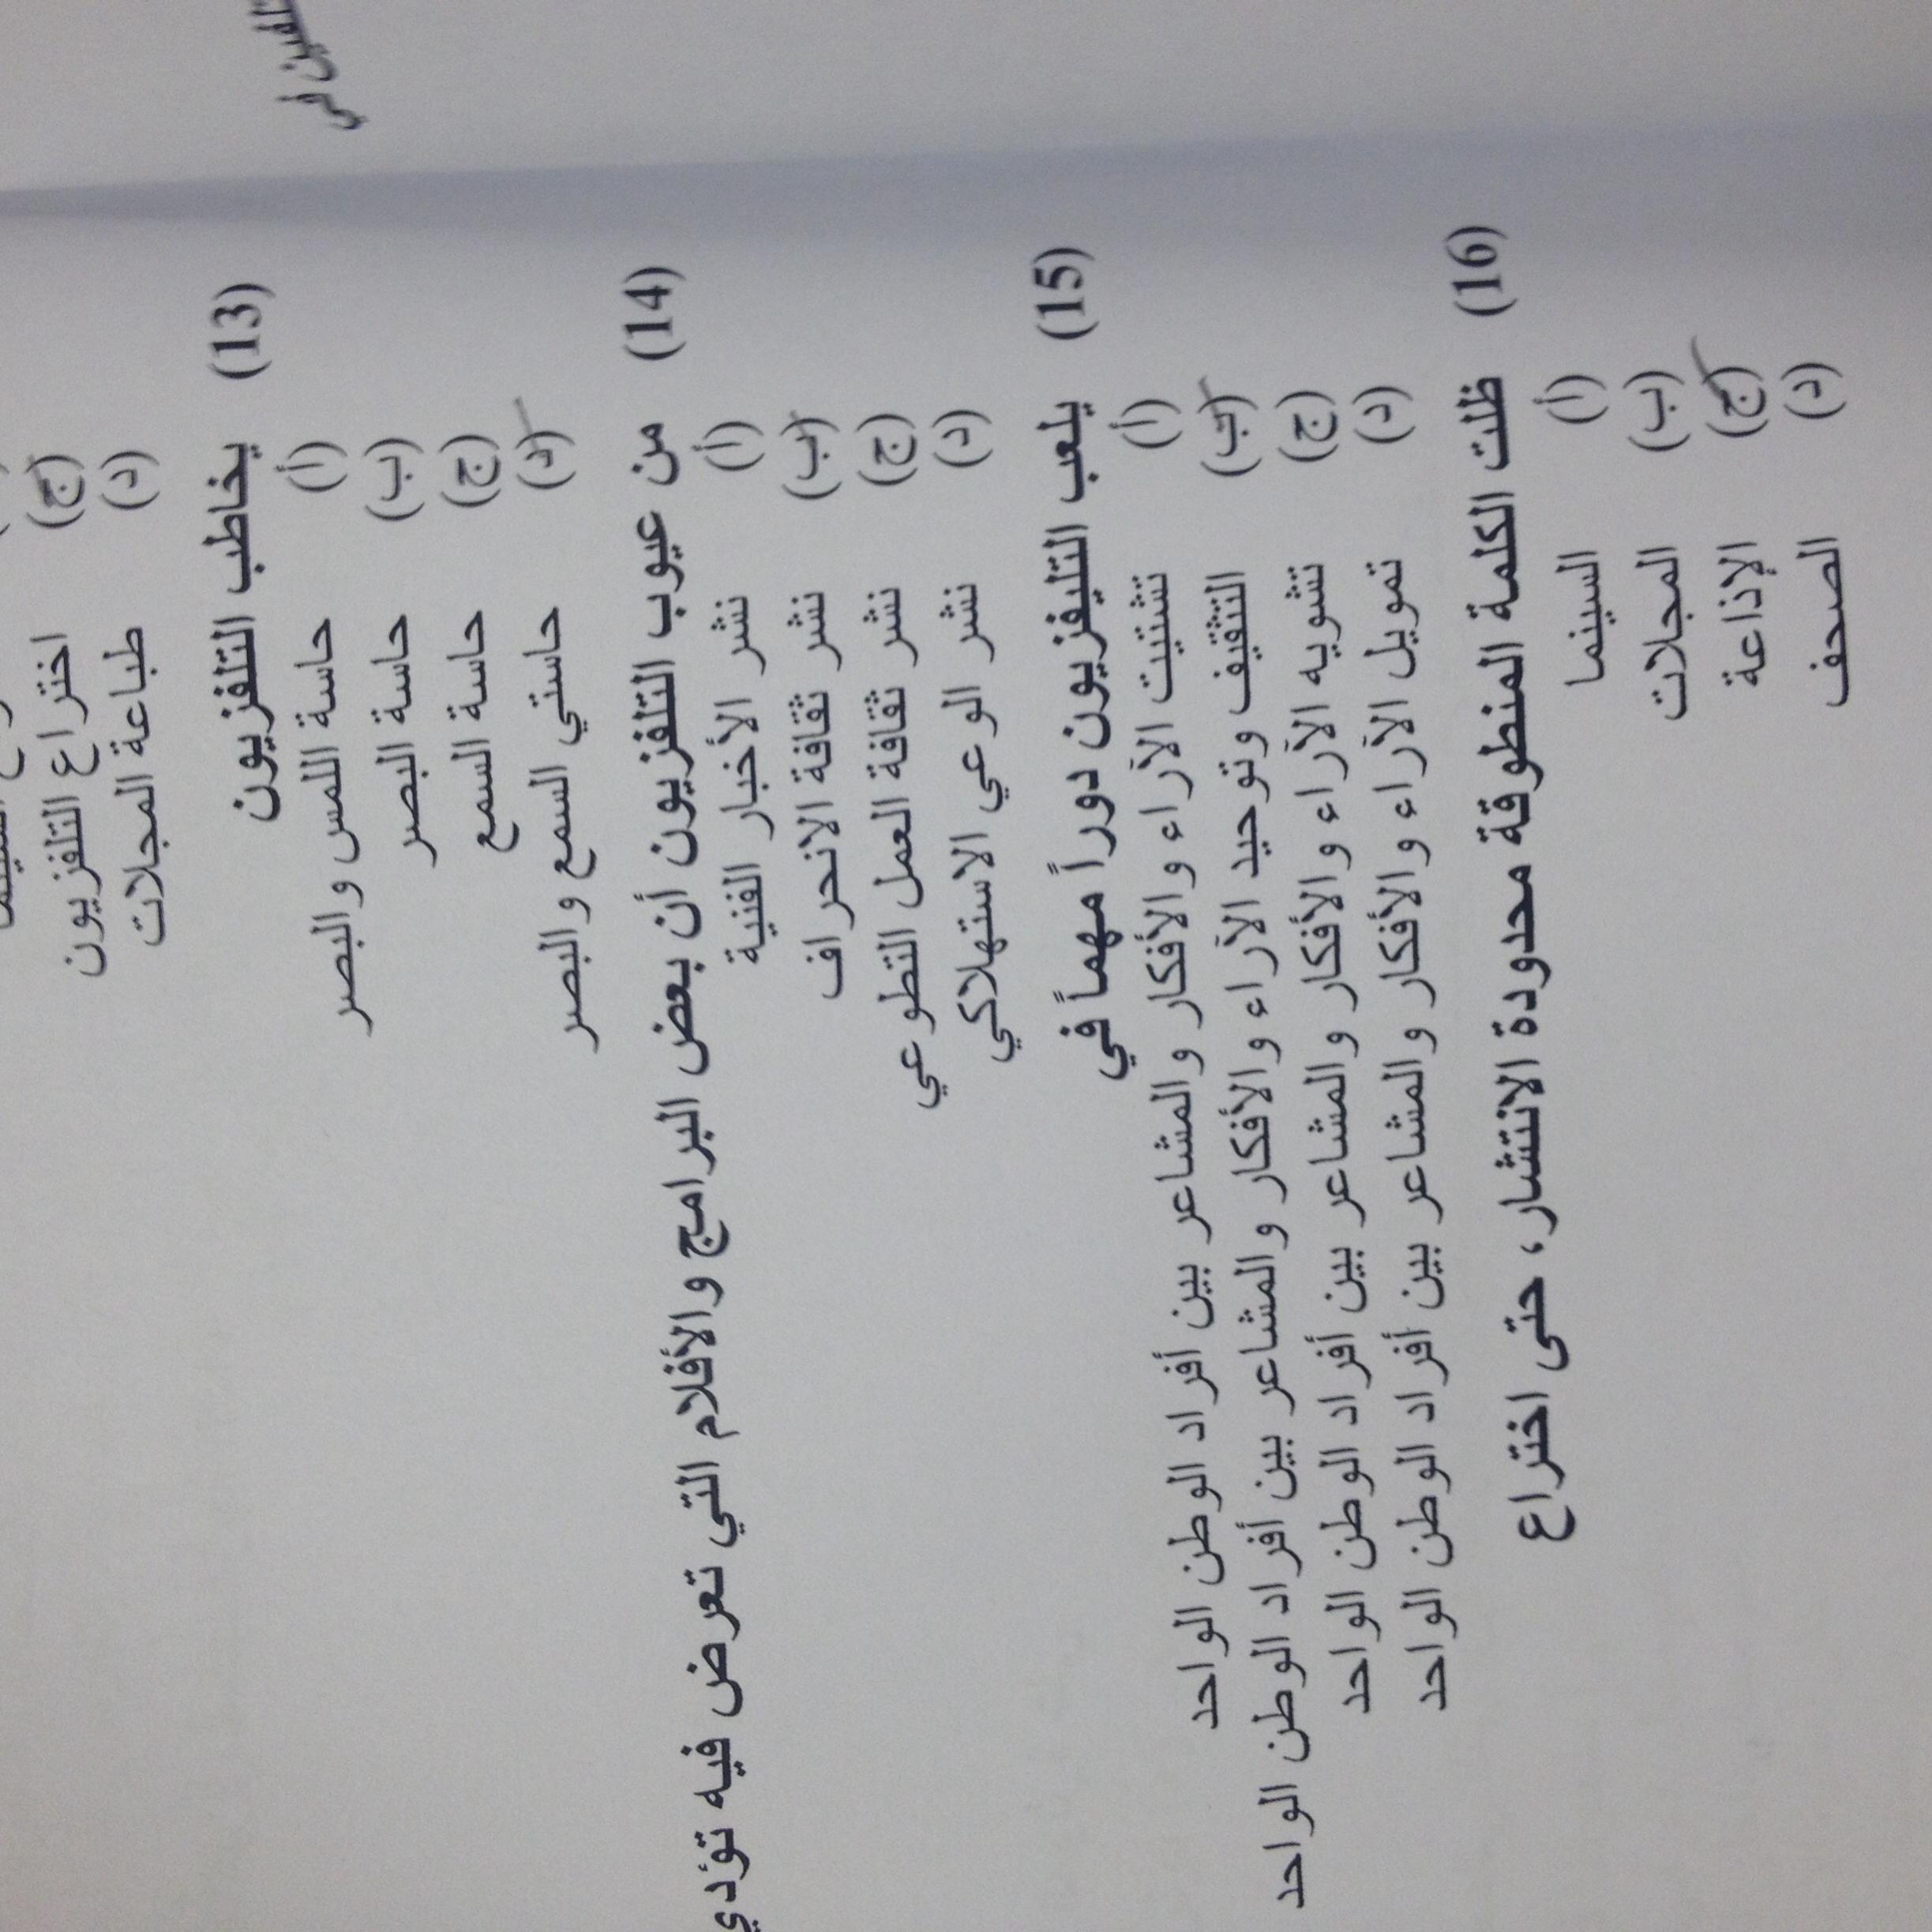 (ج) اختراع التلفزيون
(د) طباعة المجلات
(13) يخاطب التلفزيون
(أ) حاسة اللمس والبصر
(ب) حاسة البصر
(ج) حاسة السمع
(د) حاستي السمع والبصر
(14) من عيوب التلفزيون أن بعض البرامج والأفلام التي تعرض فيه تؤدي
(أ) نشر الأخبار الفنية
(ب) نشر ثقافة الانحراف
(ج) نشر ثقافة العمل التطوعي
(د) نشر الوعي الاستهلاكي
(15) يلعب التليفزيون دوراً مهماً في
(أ) تشتيت الآراء والأفكار والمشاعر بين أفراد الوطن الواحد
(ب) التثقيف وتوحيد الآراء والأفكار والمشاعر بين أفراد الوطن الواحد
(ج) تشويه الآراء والأفكار والمشاعر بين أفراد الوطن الواحد
(د) تمويل الآراء والأفكار والمشاعر بين أفراد الوطن الواحد
(16) ظلت الكلمة المنطوقة محدودة الانتشار، حتى اختراع
(أ) السينما
(ب) المجلات
(ج) الإذاعة
(د) الصحف